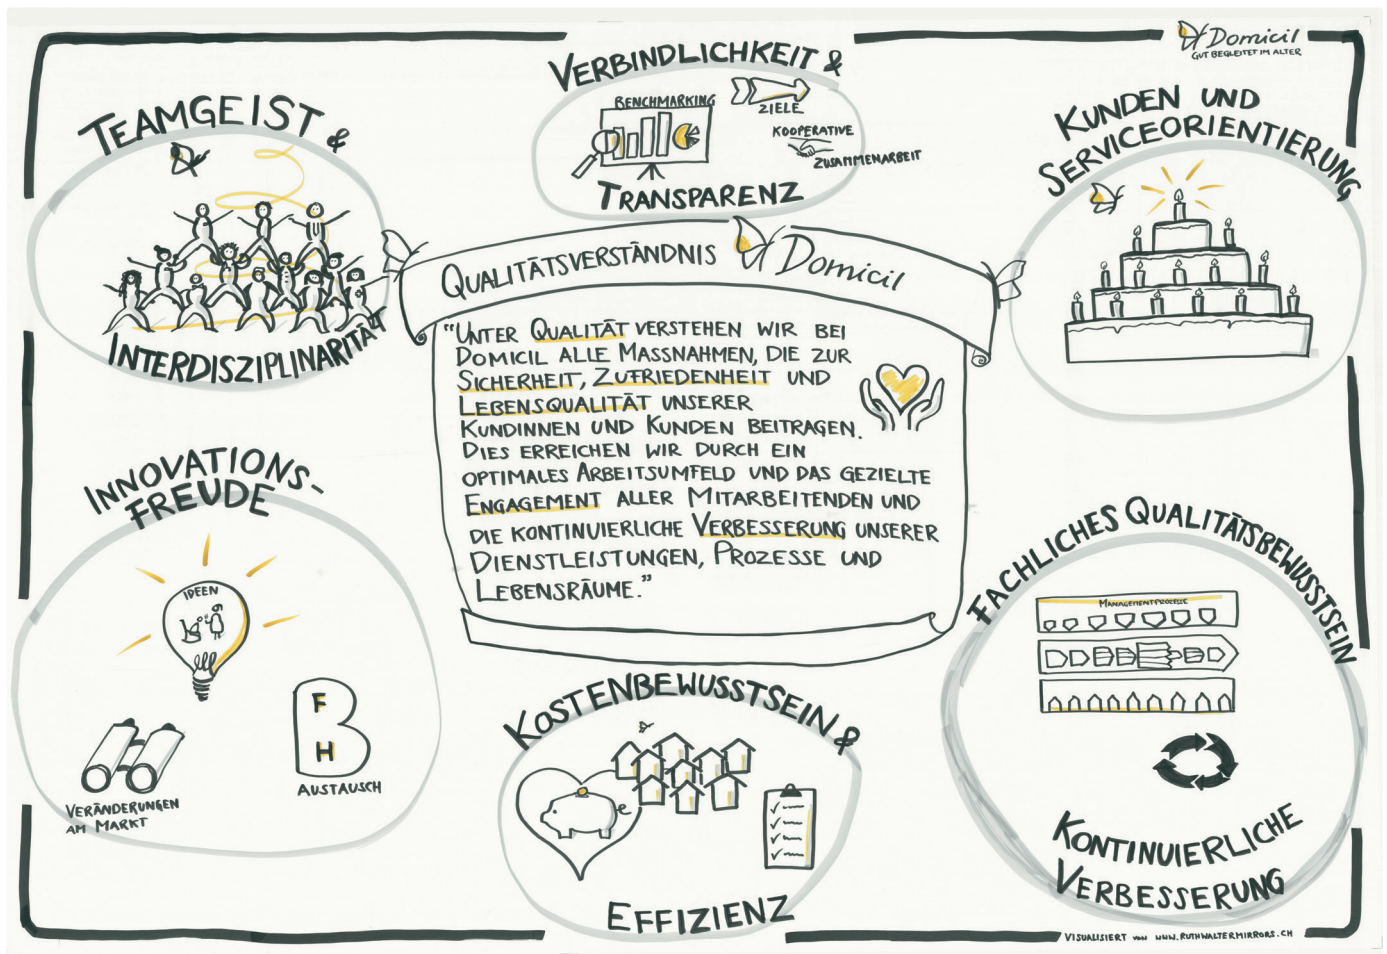 Domicil
GUT BEGLEITET IM ALTER
VERBINDLICHKEIT &
BENCHMARKING
ZIELE
KOOPERATIVE
ZUSAMMENARBEIT
TRANSPARENZ
TEAMGEIST &
INTERDISZIPLINARITÄT
KUNDEN UND
SERVICEORIENTIERUNG
QUALITÄTSVERSTÄNDNIS Domicil
"UNTER QUALITÄT VERSTEHEN WIR BEI
DOMICIL ALLE MASSNAHMEN, DIE ZUR
SICHERHEIT, ZUFRIEDENHEIT UND
LEBENSQUALITÄT UNSERER
KUNDINNEN UND KUNDEN BEITRAGEN.
DIES ERREICHEN WIR DURCH EIN
OPTIMALES ARBEITSUMFELD UND DAS GEZIELTE
ENGAGEMENT ALLER MITARBEITENDEN UND
DIE KONTINUIERLICHE VERBESSERUNG UNSERER
DIENSTLEISTUNGEN, PROZESSE UND
LEBENSRÄUME."
INNOVATIONS-
FREUDE
IDEEN
VERÄNDERUNGEN
AM MARKT
B
F
H
AUSTAUSCH
KOSTENBEWUSSTSEIN &
EFFIZIENZ
FACHLICHES QUALITÄTSBEWUSSTSEIN
MANAGEMENTPROZESSE
KONTINUIERLICHE
VERBESSERUNG
VISUALISIERT VON WWW.RUTHWALTERMIRRORS.CH